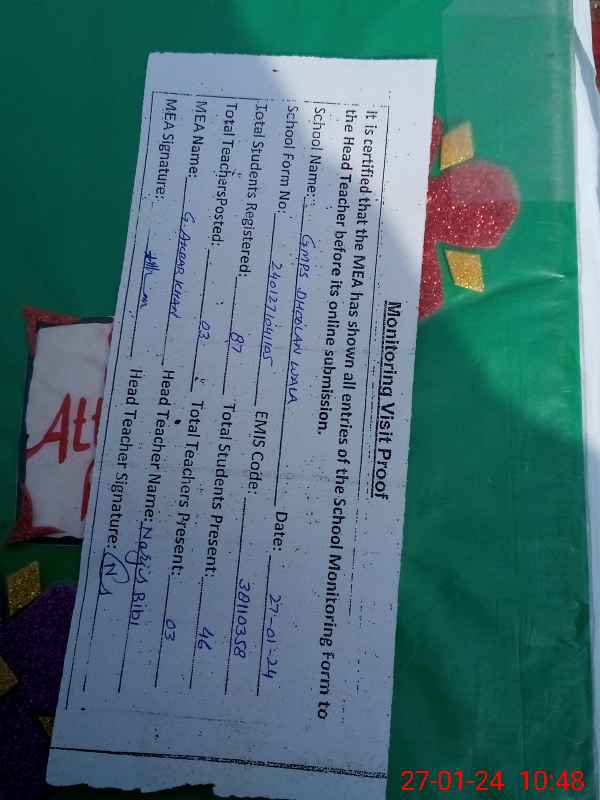 Monitoring Visit Proof
It is certified that the MEA has shown all entries of the School Monitoring Form to
the Head Teacher before its online submission.
School Name: GMPS DHOOLAN WALA Date: 27-01-24
School Form No: 2401271041105 EMIS Code: 38110358
Total Students Registered: 87 Total Students Present: 46
Total TeachersPosted: 03 Total Teachers Present: 03
MEA Name: G. AKBAR KHAN Head Teacher Name: Narjis Bibi
MEA Signature: Head Teacher Signature:
Att
27-01-24 10:48